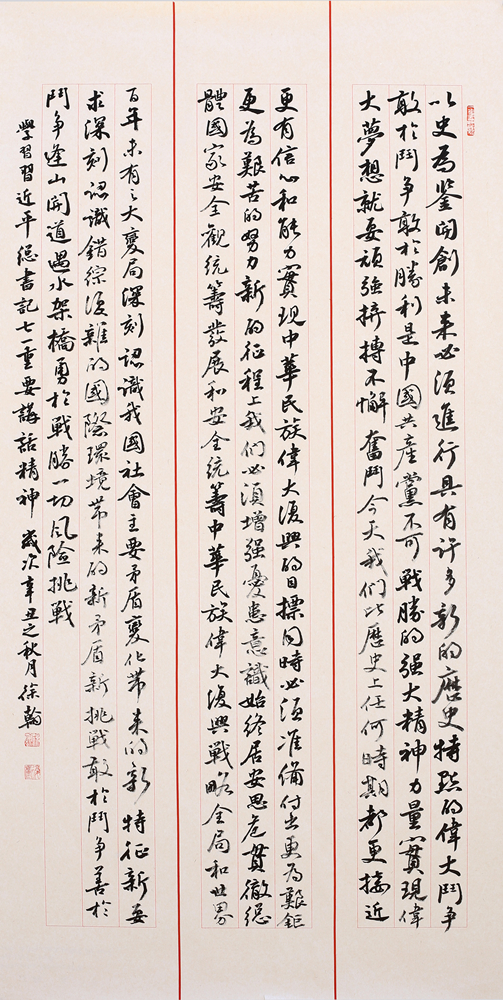 以史為鉴開創未来必须進行具有许多新的歷史特點的偉大鬥争
敢於鬥争敢於勝利是中國共産黨不可戰勝的强大精神力量實現偉
大夢想就要頑强拼搏不懈奮鬥今天我们比歷史上任何時期都更接近
更有信心和能力實現中華民族偉大復興的目標同時必须准備付出更為艱鉅
更為艱苦的努力新的征程上我们必須增强憂患意識始終居安思危貫徹總
體國家安全觀统籌發展和安全统籌中華民族偉大復興戰略全局和世界
百年未有之大變局深刻認識我國社會主要矛盾變化带来的新特征新要
求深刻認識錯綜復雜的國際環境带来的新矛盾新挑戰敢於鬥争善於
鬥争逢山開道遇水架橋勇於戰勝一切風險挑戰
學習習近平總書記七一重要講話精神 歲次辛丑之秋月徐翰